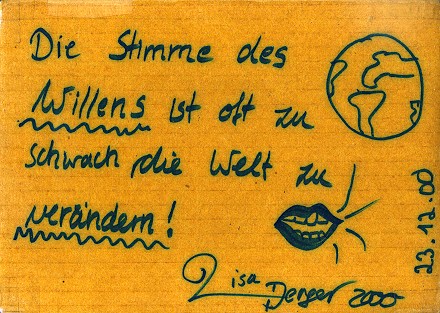 Die Stimme des
Willens ist oft zu
schwach, die Welt zu
verändern!
Lisa Berger 2000
23.12.00